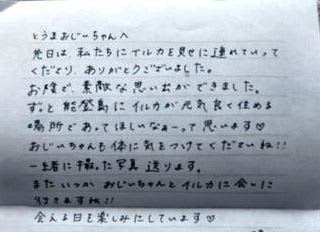 とうまおじいちゃんへ
先日は、私たちにイルカを見せに連れていって
くださり、ありがとうございました。
お陰で、素敵な思い出ができました。
ずっと能登島にイルカが元気良く住める
場所であってほしいなぁーって思います♡
おじいちゃんも体に気をつけてくださいね!!
一緒に撮った写真送ります。
またいつかおじいちゃんとイルカに会いに
行きますね!!
会える日を楽しみにしています♡